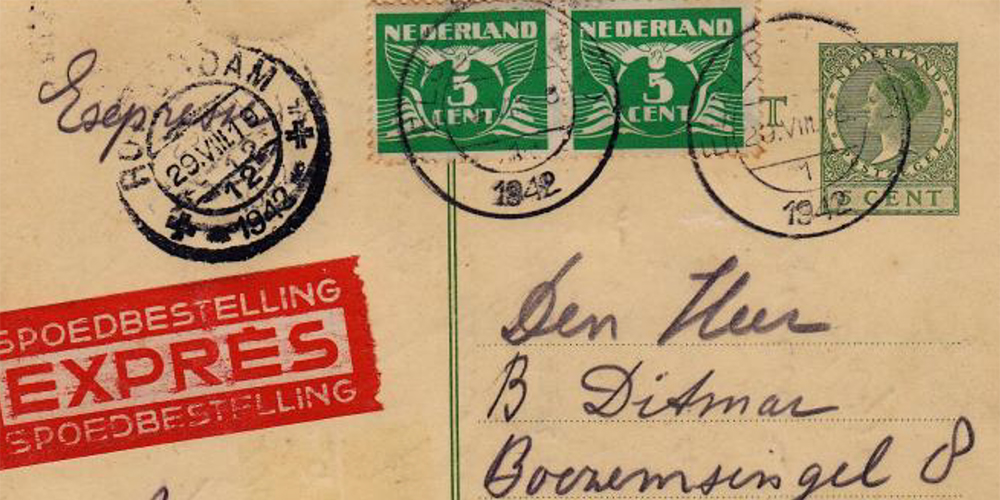 Expresse
ROTTERDAM
29.VIII.19
12
1942
NEDERLAND
5
CENT
NEDERLAND
5
CENT
1942
29.VIII.
1
1942
NEDERLAND
POSTZEGEL
5 CENT
SPOEDBESTELLING
EXPRES
SPOEDBESTELLING
Den Heer
B Ditmar
Boezemsingel 8